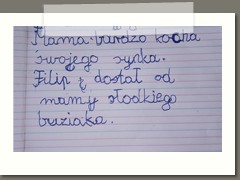 Mama bardzo kocha
swojego synka.
Filip dostał od
mamy słodkiego
buziaka.